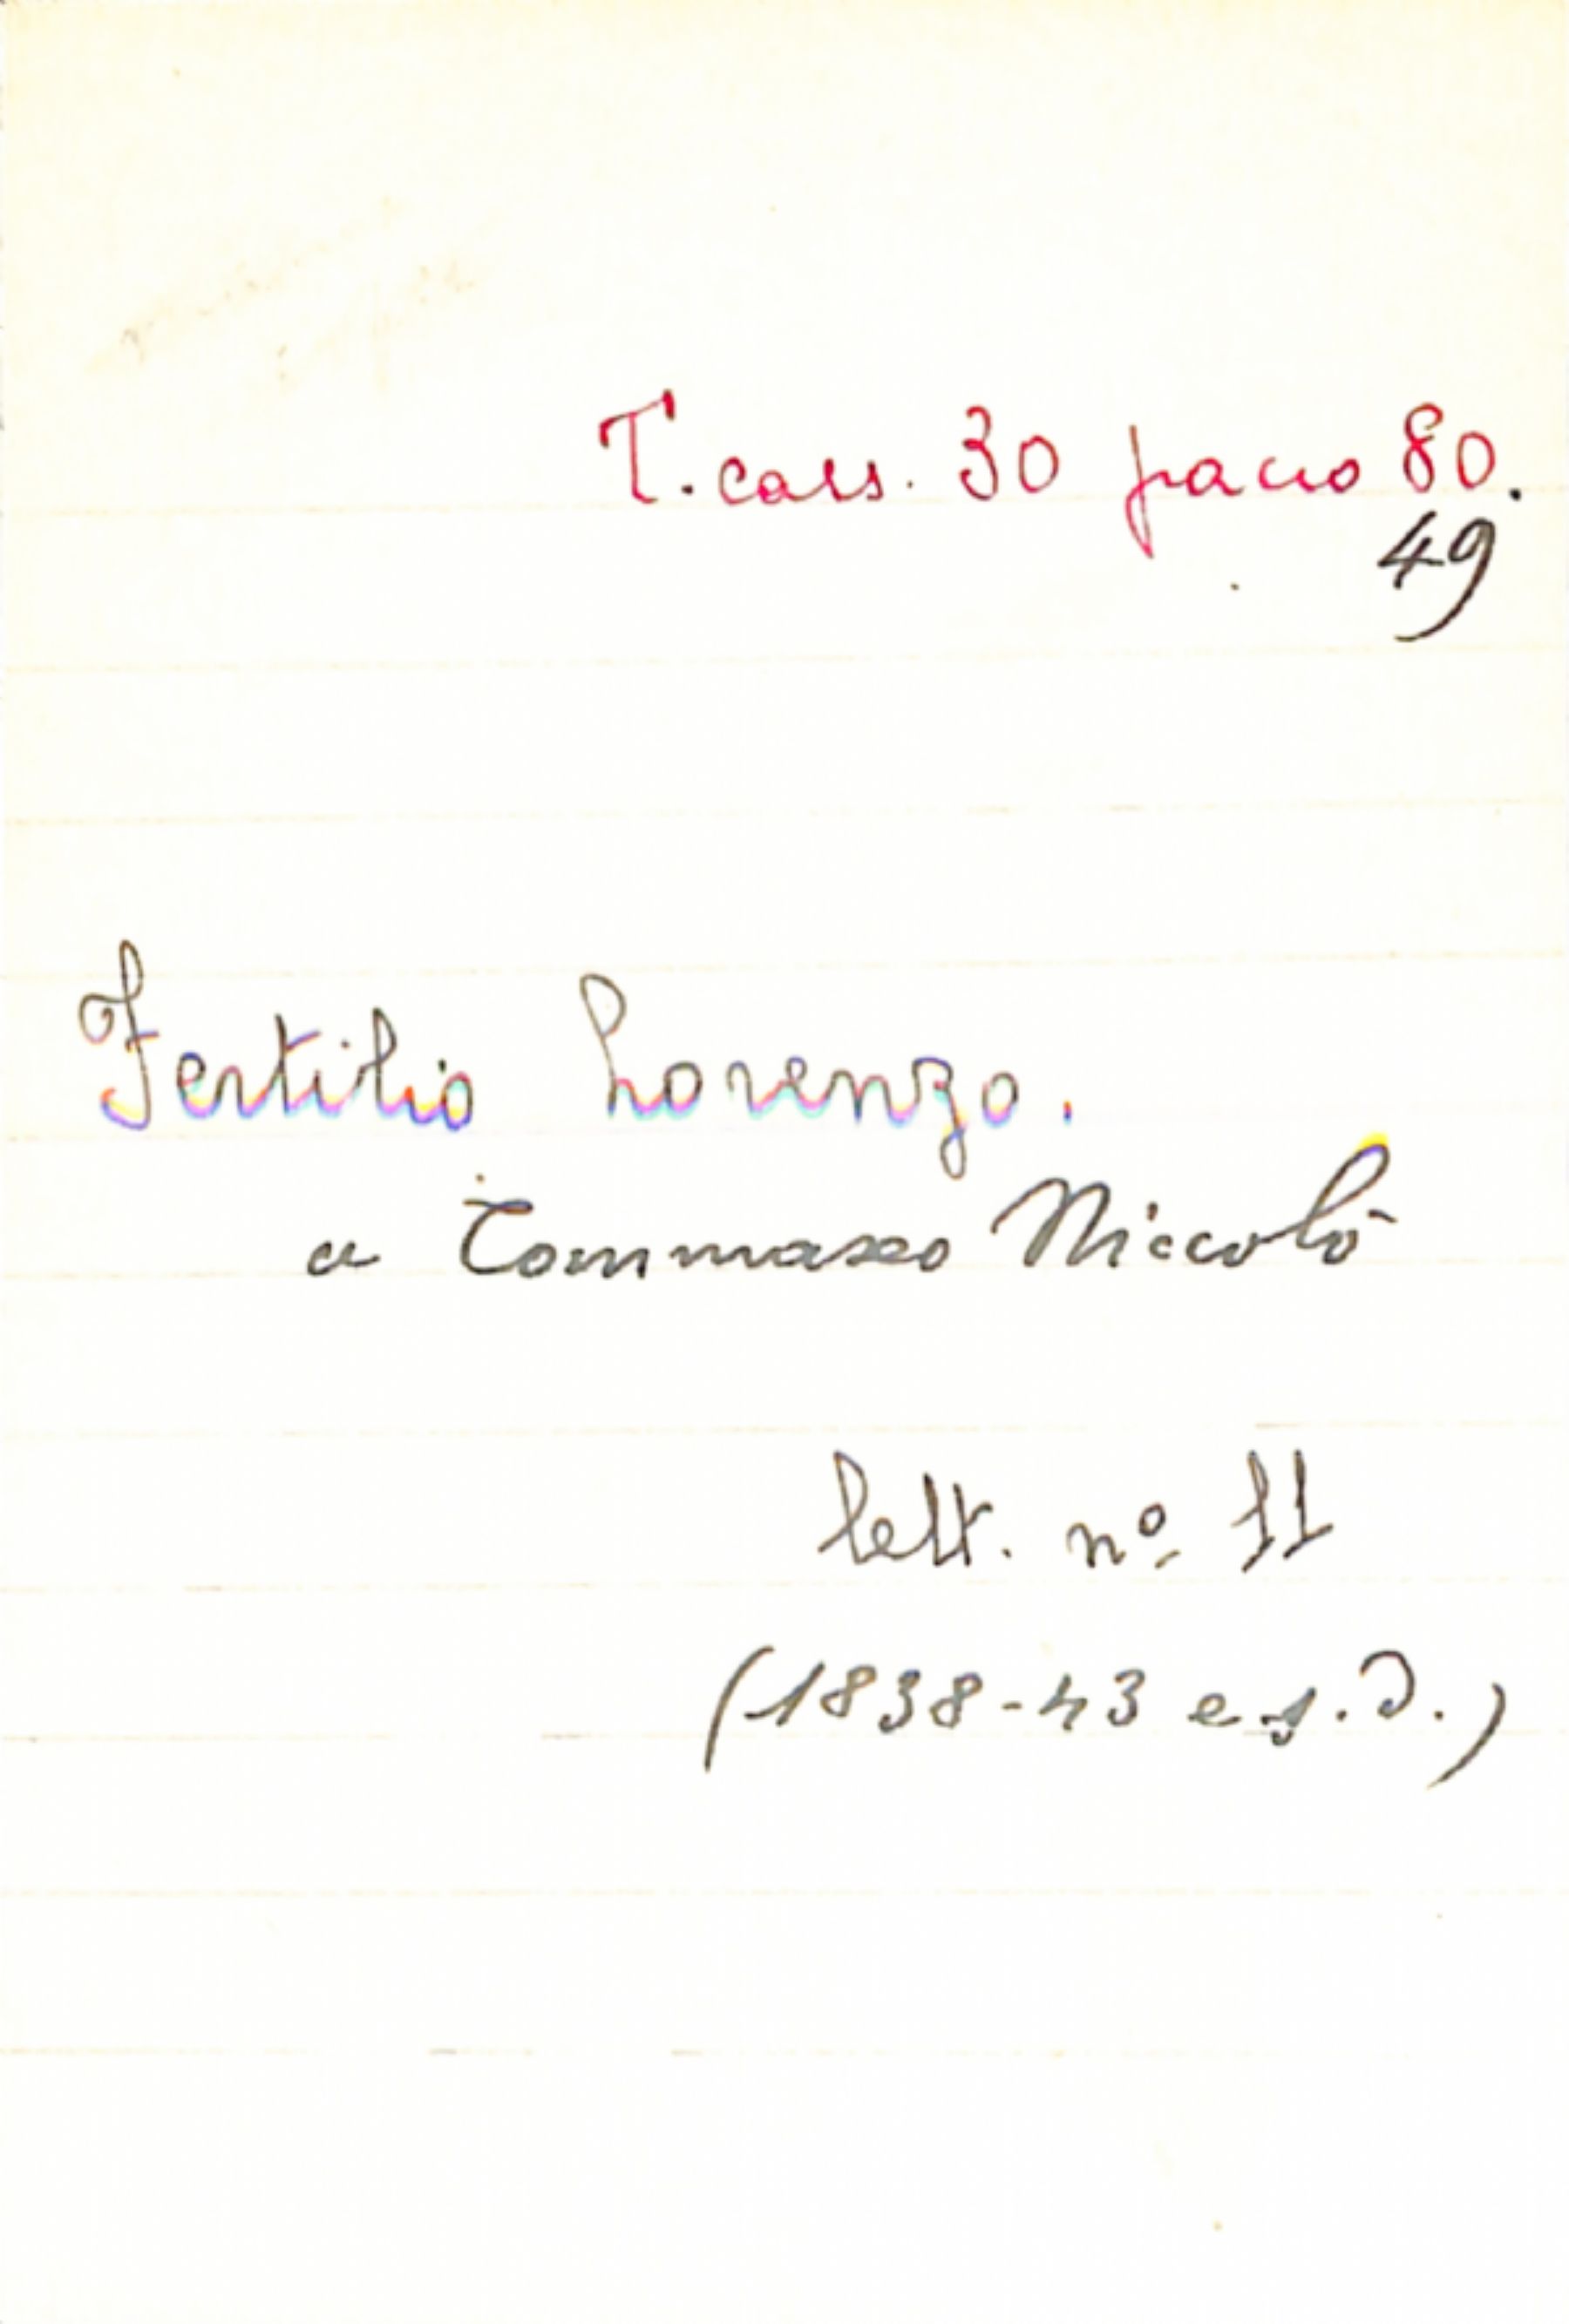 T. cass. 30 pacco 80.
49
Fertilio Lorenzo.
a Tommaseo Niccolò
lett. nº 11
(1838-43 e s.d.)